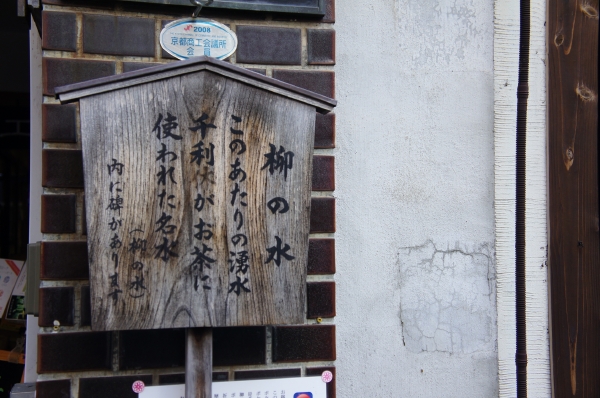 2008
京都商工会議所
会員
柳の水
このあたりの湧水
千利休がお茶に
使われた名水
(柳の水)
内に碑があります